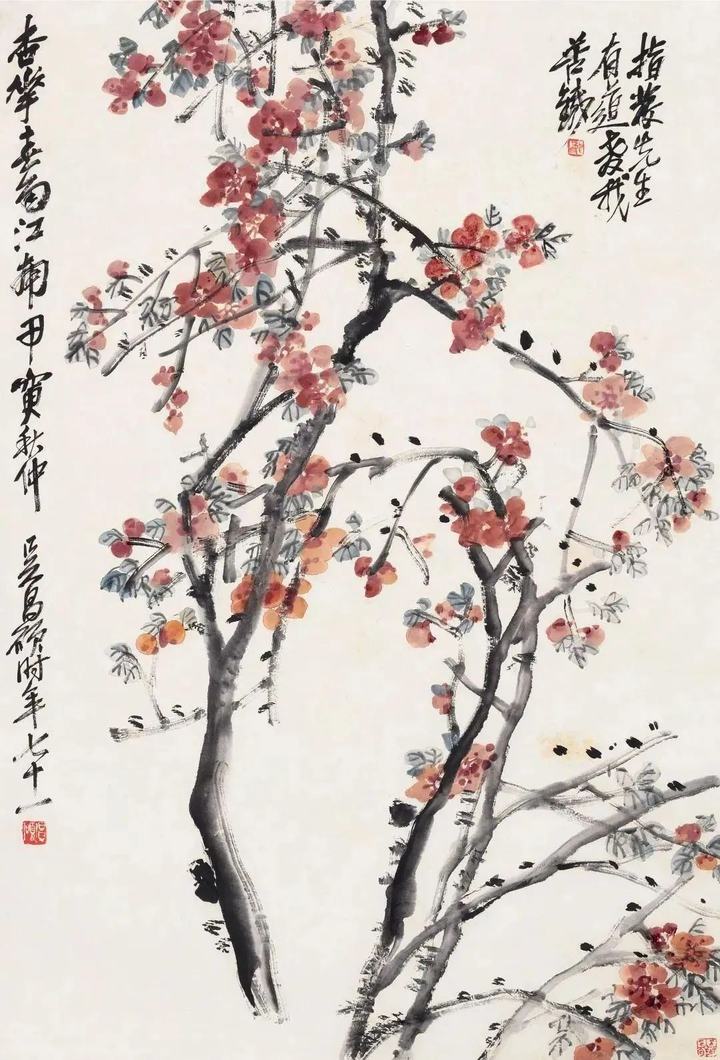 先生
有道教我
苦鐵
杏華春雨江南甲寅秋仲 吳昌碩時年七十一